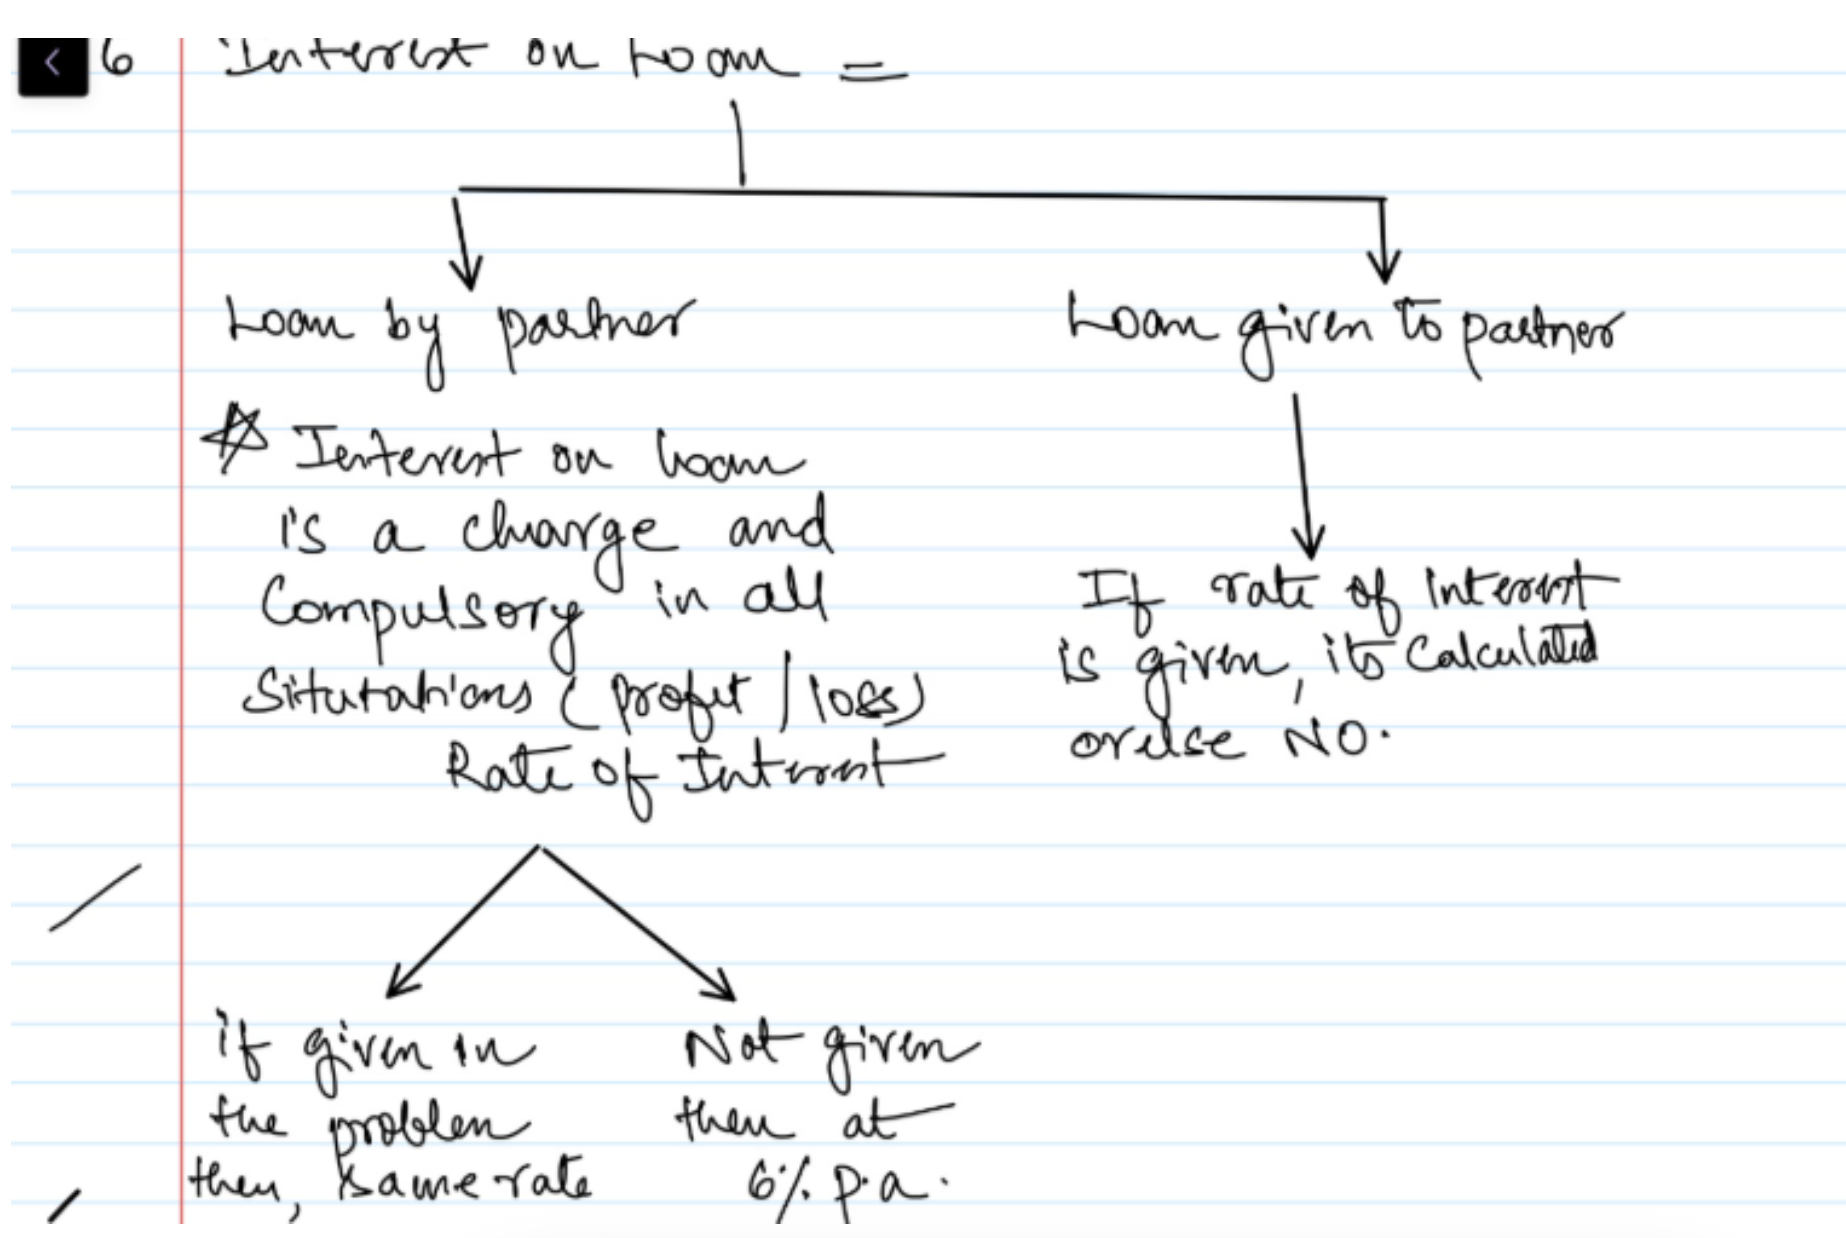 6 Interest on Loan =
Loan by partner
Loan given to partner
Interest on loan
is a charge and
Compulsory in all
Situtations (profit / loss)
Rate of Interest
If rate of interest
is given, its Calculated
orelse NO.
if given in
the problem
then, same rate
Not given
then at
6% p.a.